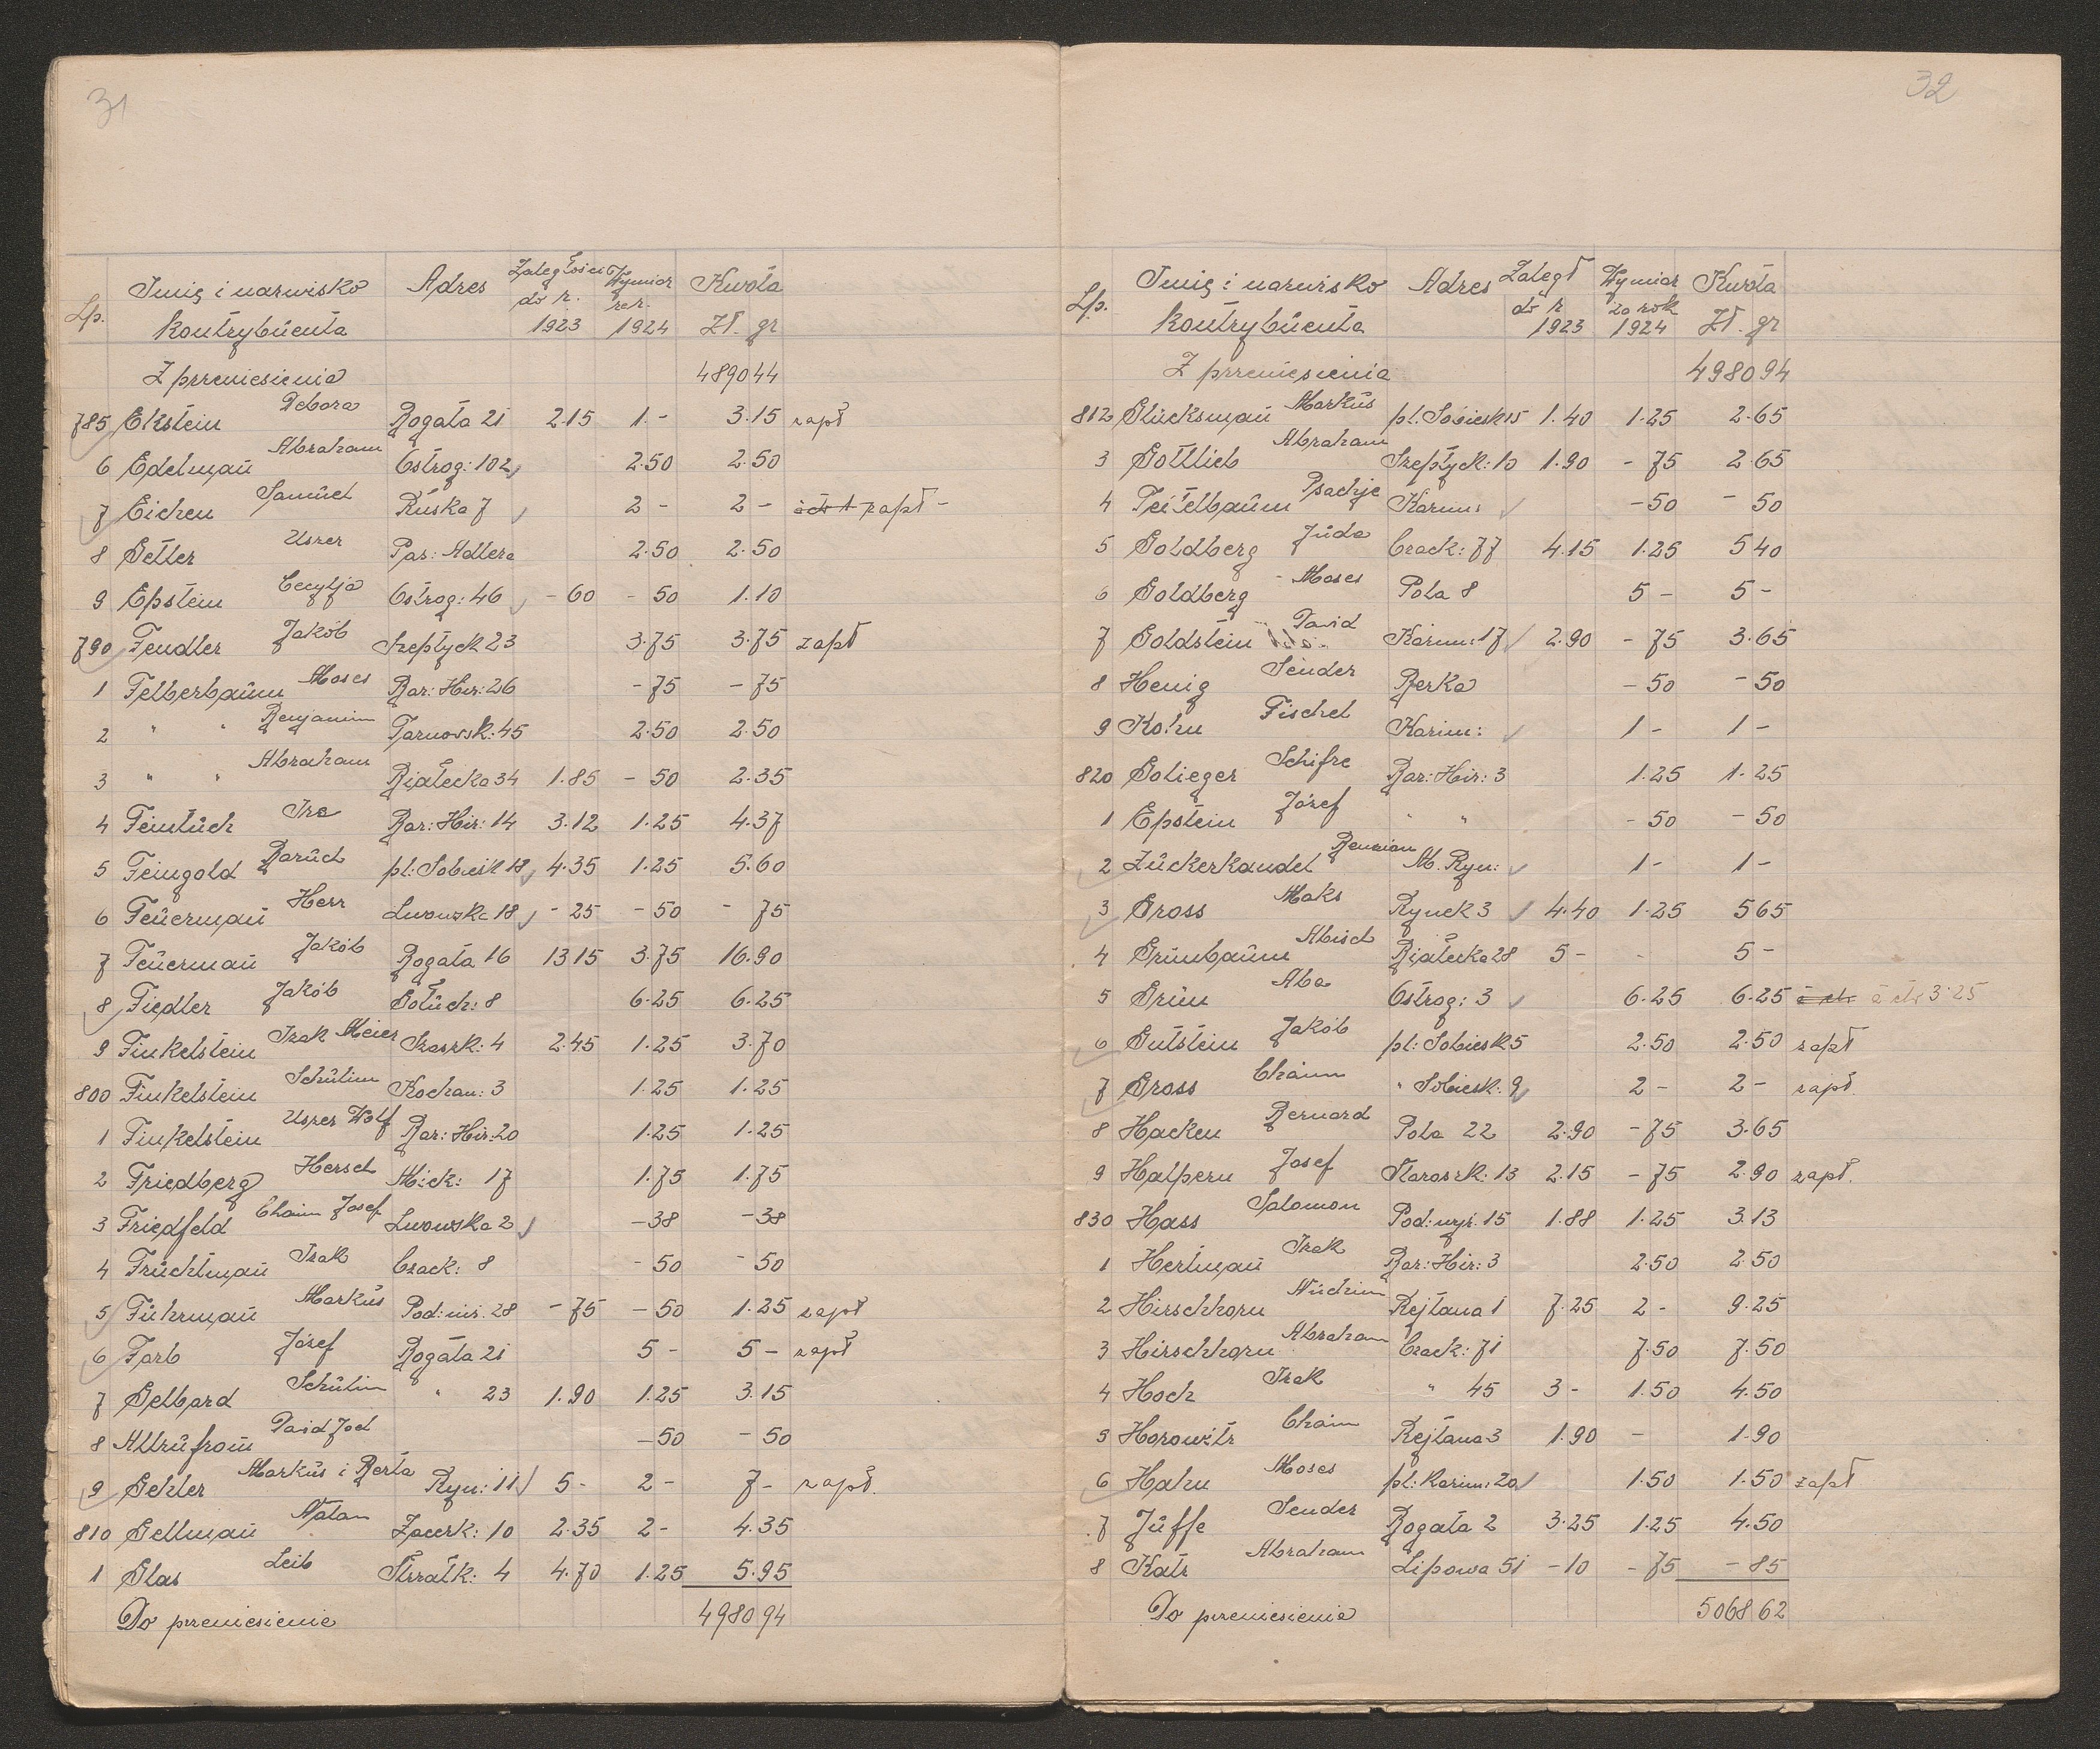 31
Lp. Imię i nazwisko kontrybuenta Adres Zaległości do r. 1923 Wymiar za r. 1924 Kwota Zł. gr
Z przeniesienia 4890 44
785 Ekstein Debora Bogata 21 2.15 1.- 3.15 zapł
6 Edelman Abraham Ostrog: 102 2.50 2.50
7 Eichen Samuel Ruska 7 2 - 2 - zapł -
8 Getter Uszer Pas: Adlera 2.50 2.50
9 Epstein Cecylja Ostrog: 46 - 60 - 50 1.10
790 Fendler Jakób Szeptyck 23 3.75 3.75 zapł
1 Felberbaum Moses Bar: Hir: 26 - 75 - 75
2 " " Benjamin Tarnowsk: 45 2.50 2.50
3 " " Abraham Rjatecka 34 1.85 - 50 2.35
4 Feintuch Bar: Hir: 14 3.12 1.25 4.37
5 Feingold Baruch pl: Sobiesk 18 4.35 1.25 5.60
6 Feuerman Herz Lwowska 18 - 25 - 50 - 75
7 Feuerman Jakób Bogata 16 13 15 3.75 16.90
8 Fiedler Jakób Sołuch: 8 6.25 6.25
9 Finkelstein Izak Meier Szaszk: 4 2.45 1.25 3.70
800 Finkelstein Schulim Kochan: 3 1.25 1.25
1 Finkelstein Uszer Wolf Bar: Hir: 20 1.25 1.25
2 Friedberg Hersch Mick: 17 1.75 1.75
3 Friedfeld Chaim Josef Lwowska 2 - 38 - 38
4 Fruchtman Izak Czack: 8 - 50 - 50
5 Fuhrman Markus Pod: niż. 28 - 75 - 50 1.25 zapł
6 Farb Józef Bogata 21 5 - 5 - zapł
7 Gelbard Schulim " 23 1.90 1.25 3.15
8 David Joel - 50 - 50
9 Gehler Markus i Berta Ryn: 11 5 - 2 - 7 - zapł.
810 Gellman Natan Zacerk: 10 2.35 2 - 4.35
1 Glas Leib Strzałk: 4 4.70 1.25 5.95
Do przeniesienie 4980 94
32
Lp. Imię i nazwisko kontrybuenta Adres Zaległ do r 1923 Wymiar za rok 1924 Kwota Zł. gr
Z przeniesienia 4980 94
812 Glucksman Markus pl. Sobiesk 15 1.40 1.25 2.65
3 Gottlieb Abraham Szeptyck: 10 1.90 - 75 2.65
4 Teitelbaum Psachje Kazim: - 50 - 50
5 Goldberg Juda Czack: 77 4.15 1.25 5 40
6 Goldberg Moses Pola 8 5 - 5 -
7 Goldstein David Kazim: 17 2.90 - 75 3.65
8 Henig Sender Berka - 50 - 50
9 Kohn Fischel Kazim: 1 - 1 -
820 Golieger Schifre Bar: Hir: 3 1.25 1.25
1 Epstein Józef " " - 50 - 50
2 Zuckerkandel Benzion M. Ryn: 1 - 1 -
3 Gross Maks Rynek 3 4.40 1.25 5 65
4 Grunbaum Abisch Rjatecka 28 5 - - 5 -
5 Grun Aba Ostrog: 3 6.25 6.25 3.25
6 Gutstein Jakób pl: Sobiesk 5 2.50 2.50 zapł
7 Gross Chaim " Sobiesk: 9 2 - 2 - zapł.
8 Hacken Bernard Pola 22 2.90 - 75 3.65
9 Halpern Josef Staroszk: 13 2.15 - 75 2.90 zapł.
830 Hass Salomon Pod: wyż. 15 1.88 1.25 3.13
1 Hertman Izak Bar: Hir: 3 2.50 2.50
2 Hirschhorn Nuchim Rejtana 1 7.25 2 - 9.25
3 Hirschhorn Abraham Czack: 71 7.50 7.50
4 Hoch Izak " 45 3 - 1.50 4.50
5 Horowitz Chaim Rejtana 3 1.90 - 1.90
6 Hahn Moses pl: Kazim: 20 1.50 1.50 zapł
7 Juffe Sender Bogata 2 3.25 1.25 4.50
8 Katz Abraham Lipowa 51 - 10 - 75 - 85
Do przeniesienie 5068 62